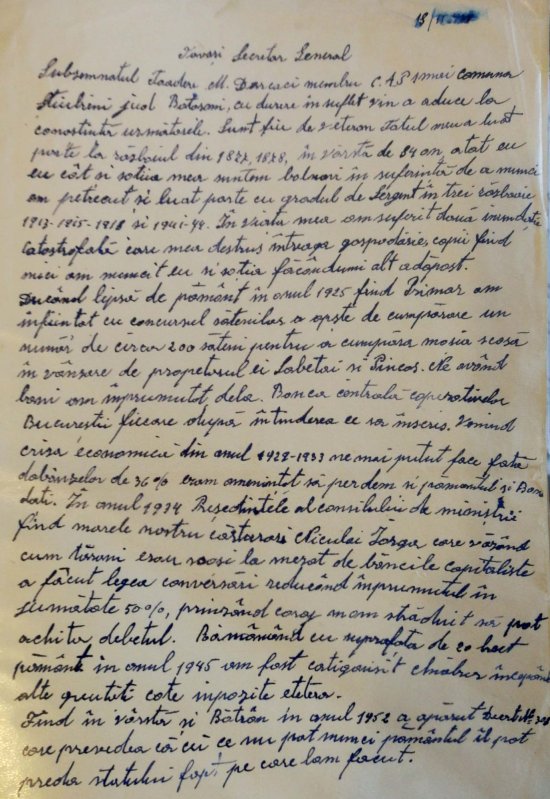 13/
Tovarăș Secretar General
Subsemnatul Toadere M. Darcaci membru C.A.P 1 mai comuna
Știubieni jud Botosani, cu durere în suflet vin a aduce la
conostința următorile. Sunt fiu de veteran Tatul meu a luat
parte la războiul din 1877, 1878, în vârstă de 84 an, atat eu
eu cât si soția mea suntem bolnavi în suferință de a munci
am petrecut si luat parte cu gradul de Sergent în trei războaie
1913-1915-1918 și 1941-44. În viața mea am suferit doua inundații
catastrofală care mea destrus întreaga gospodărie, copii fiind
mici am muncit eu si soția făcândumi alt adăpost.
Ducând lipsă de pământ în anul 1925 fiind Primar am
înființat cu concursul sătenilor o opște de cumpărare un
număr de circa 200 săteni pentru a cumpăra moșia scoasă
în vânzare de propetarul ei Sabetai si Pincos. Ne având
bani am înprumutat dela. Banca centrală coperativelor
București fiecare după întinderea ce sa înscris. Venind
criza economică din anul 1929-1933 ne mai putut face fata
dobânzelor de 36% eram amenințat să perdem si pamantul și Banii
dati. În anul 1934 Președintele al consiliului de miniștrii
fiind marele nostru cărturar Niculai Iorga care văzând
cum țărani erau scosi la mezat de băncile capitaliste
a făcut legea conversiei reducând înprumutul în
jumătate 50%, prinzând curaj mam străduit să pot
achita debetul. Rămânând cu suprafața de 20 hect
pământ în anul 1945 am fost catigarisit chiabur începând
alte greutăti cote inpozite etetera.
Fiind în vârstă și Bătrân in anul 1952 a apărut Decret Nr.
care prevedea că cei ce nu pot munci pământul îl pot
preda statului fapt pe care lam facut.